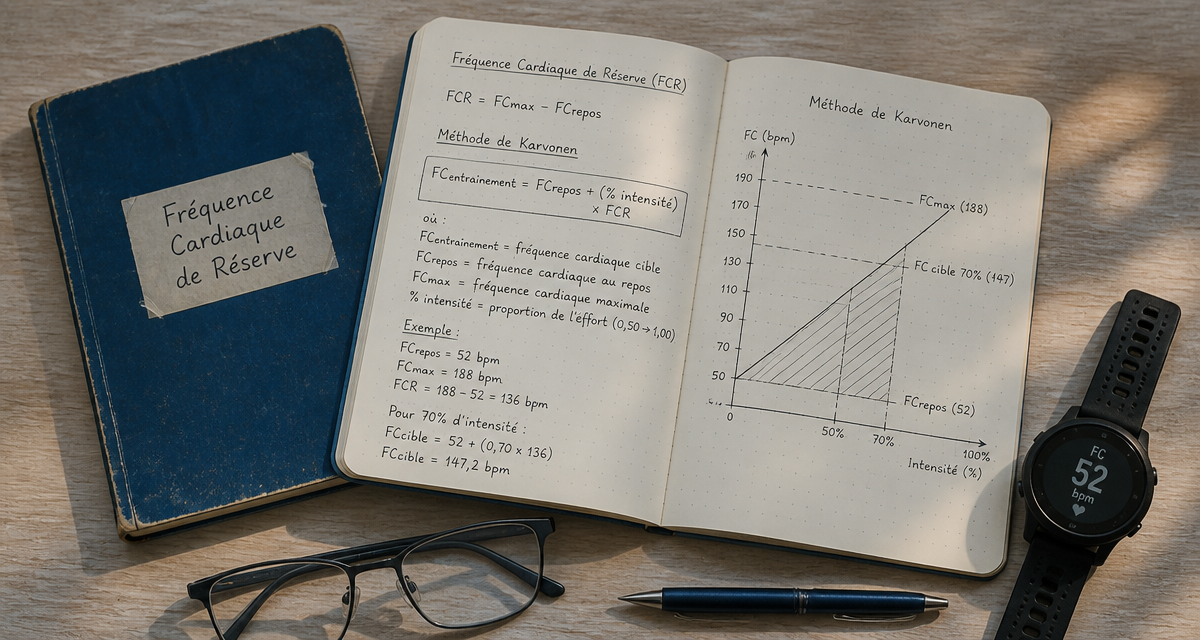 Fréquence
Cardiaque
de Réserve
Fréquence Cardiaque de Réserve (FCR)
FCR = FCmax − FCrepos
Méthode de Karvonen
FCentrainement = FCrepos + (% intensité)
× FCR
où :
FCentrainement = fréquence cardiaque cible
FCrepos = fréquence cardiaque au repos
FCmax = fréquence cardiaque maximale
% intensité = proportion de l'effort (0,50→1,00)
Exemple :
FCrepos = 52 bpm
FCmax = 188 bpm
FCR = 188 − 52 = 136 bpm
Pour 70% d'intensité :
FCcible = 52 + (0,70 x 136)
FCcible = 147,2 bpm
Méthode de Karvonen
FC (bpm)
190
FCmax (188)
170
150
FC cible 70% (147)
130
110
90
70
50
FCrepos (52)
0
50%
70%
100%
Intensité (%)
FC
52
bpm